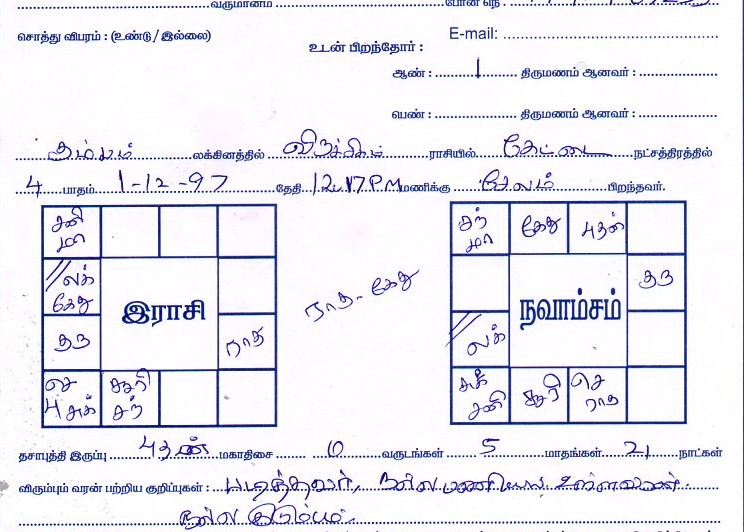 வருமானம்
சொத்து விபரம் : (உண்டு / இல்லை)
உடன் பிறந்தோர் :
E-mail:
ஆண் : 1 திருமணம் ஆனவர் :
பெண் : திருமணம் ஆனவர் :
கும்பம் லக்கினத்தில் விருச்சிகம் ராசியில் கேட்டை நட்சத்திரத்தில்
4 பாதம் 1-12-97 தேதி 12.17 PM மணிக்கு சேலம் பிறந்தவர்.
சனி
மா
லக்
கேது
குரு
ராகு
செ
4 சுக்
சூரி
சந்
இராசி
ராகு - கேது
சந்
மா
கேது
புதன்
குரு
லக்
சுக்
சனி
சூரி
செ
ராகு
நவாம்சம்
தசாபுத்தி இருப்பு புதன் மகாதிசை 0 வருடங்கள் 5 மாதங்கள் 21 நாட்கள்
விரும்பும் வரன் பற்றிய குறிப்புகள் : படித்தவர், நல்ல பணியில் உள்ளவர்
நல்ல குடும்பம்.